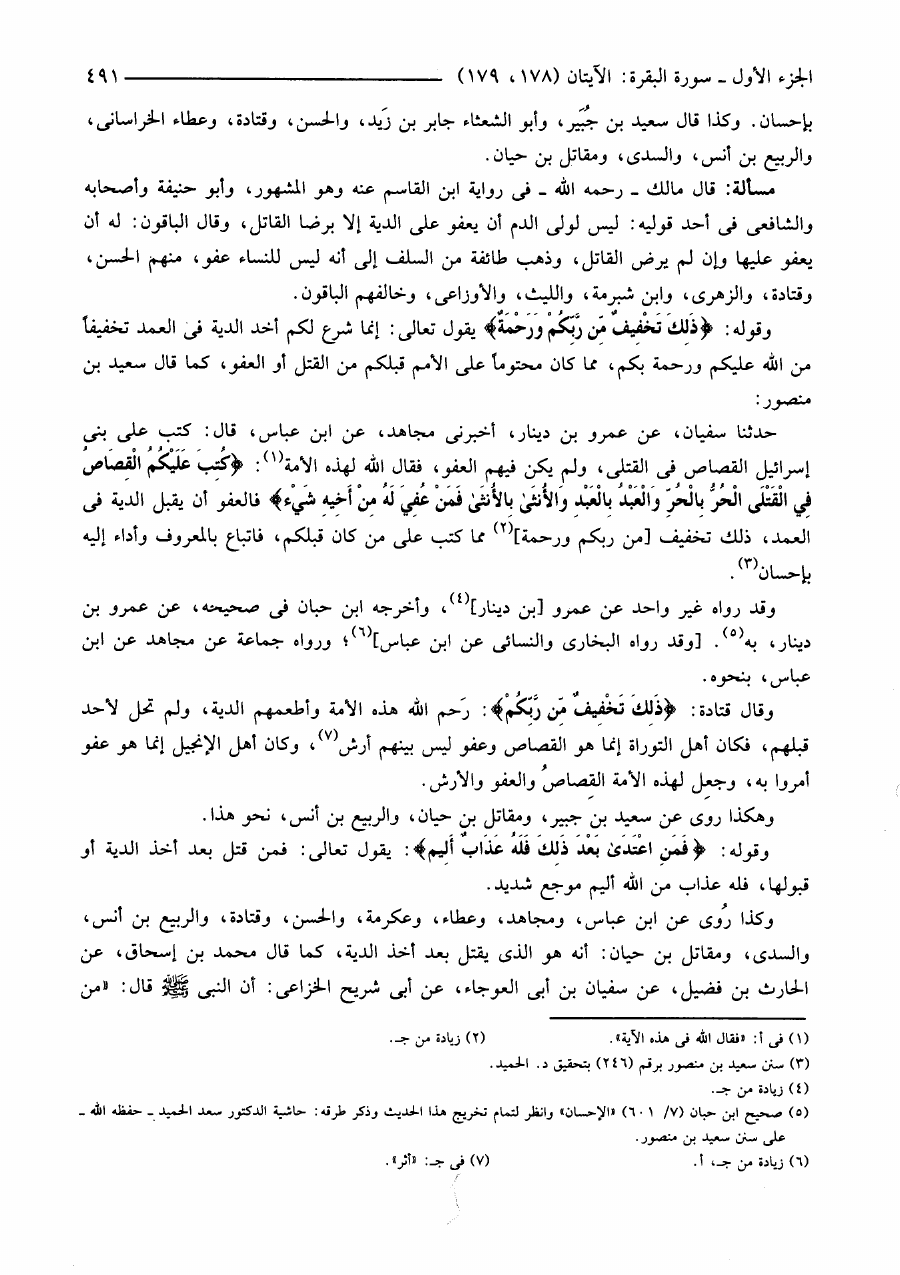 الجزء الأول ـ سورة البقرة: الآيتان (١٧٨، ١٧٩) ٤٩١
بإحسان. وكذا قال سعيد بن جُبَير، وأبو الشعثاء جابر بن زَيد، والحسن، وقتادة، وعطاء الخراسانى،
والربيع بن أنس، والسدى، ومقاتل بن حيان.
مسألة: قال مالك ـ رحمه الله ـ فى رواية ابن القاسم عنه وهو المشهور، وأبو حنيفة وأصحابه
والشافعى فى أحد قوليه: ليس لولى الدم أن يعفو على الدية إلا برضا القاتل، وقال الباقون: له أن
يعفو عليها وإن لم يرض القاتل، وذهب طائفة من السلف إلى أنه ليس للنساء عفو، منهم الحسن،
وقتادة، والزهرى، وابن شبرمة، والليث، والأوزاعى، وخالفهم الباقون.
وقوله: ﴿ذَلِكَ تَخْفِيفٌ مِّن رَّبِّكُمْ وَرَحْمَةٌ﴾ يقول تعالى: إنما شرع لكم أخذ الدية فى العمد تخفيفاً
من الله عليكم ورحمة بكم، مما كان محتوماً على الأمم قبلكم من القتل أو العفو، كما قال سعيد بن
منصور:
حدثنا سفيان، عن عمرو بن دينار، أخبرنى مجاهد، عن ابن عباس، قال: كتب على بنى
إسرائيل القصاص فى القتلى، ولم يكن فيهم العفو، فقال الله لهذه الأمة(١): ﴿كُتِبَ عَلَيْكُمُ الْقِصَاصُ
فِي الْقَتْلَى الْحُرُّ بِالْحُرِّ وَالْعَبْدُ بِالْعَبْدِ وَالأُنثَىٰ بِالأُنثَىٰ فَمَنْ عُفِيَ لَهُ مِنْ أَخِيهِ شَيْء﴾ فالعفو أن يقبل الدية فى
العمد، ذلك تخفيف [من ربكم ورحمة](٢) مما كتب على من كان قبلكم، فاتباع بالمعروف وأداء إليه
بإحسان(٣).
وقد رواه غير واحد عن عمرو [بن دينار](٤)، وأخرجه ابن حبان فى صحيحه، عن عمرو بن
دينار، به(٥). [وقد رواه البخارى والنسائى عن ابن عباس](٦)؛ ورواه جماعة عن مجاهد عن ابن
عباس، بنحوه.
وقال قتادة: ﴿ذَلِكَ تَخْفِيفٌ مِّن رَّبِّكُمْ﴾: رَحم الله هذه الأمة وأطعمهم الدية، ولم تحل لأحد
قبلهم، فكان أهل التوراة إنما هو القصاص وعفو ليس بينهم أرش(٧)، وكان أهل الإنجيل إنما هو عفو
أمروا به، وجعل لهذه الأمة القصاصُ والعفو والأرش.
وهكذا روى عن سعيد بن جبير، ومقاتل بن حيان، والربيع بن أنس، نحو هذا.
وقوله: ﴿فَمَنِ اعْتَدَىٰ بَعْدَ ذَلِكَ فَلَهُ عَذَابٌ أَلِيم﴾: يقول تعالى: فمن قتل بعد أخذ الدية أو
قبولها، فله عذاب من الله أليم موجع شديد.
وكذا رُوى عن ابن عباس، ومجاهد، وعطاء، وعكرمة، والحسن، وقتادة، والربيع بن أنس،
والسدى، ومقاتل بن حيان: أنه هو الذى يقتل بعد أخذ الدية، كما قال محمد بن إسحاق، عن
الحارث بن فضيل، عن سفيان بن أبى العوجاء، عن أبى شريح الخزاعى: أن النبى ﷺ قال: «من
(١) فى أ: «فقال الله فى هذه الآية». (٢) زيادة من جـ.
(٣) سنن سعيد بن منصور برقم (٢٤٦) بتحقيق د. الحميد.
(٤) زيادة من جـ.
(٥) صحيح ابن حبان (٧/ ٦٠١) «الإحسان» وانظر لتمام تخريج هذا الحديث وذكر طرقه: حاشية الدكتور سعد الحميد ـ حفظه الله ـ
على سنن سعيد بن منصور.
(٦) زيادة من جـ، أ. (٧) فى جـ: «أثر».